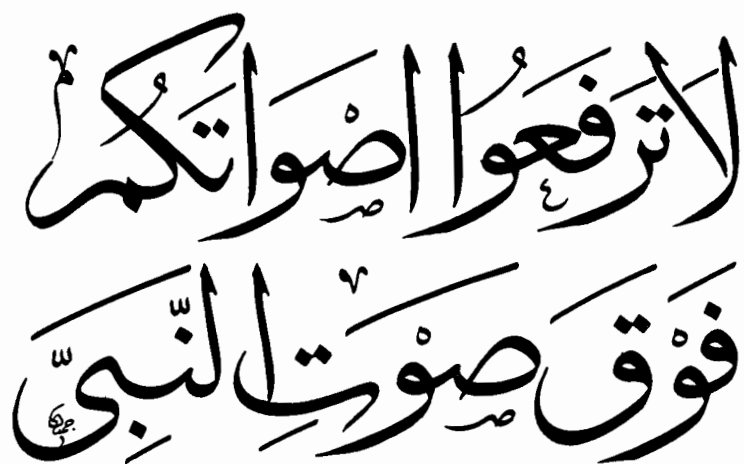 لَا تَرْفَعُوا أَصْوَاتَكُمْ
فَوْقَ صَوْتِ النَّبِيِّ